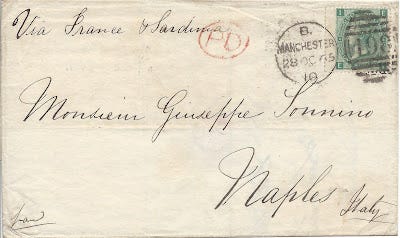 Via France & Sardinia
PD
B.
MANCHESTER
28 OC 65
10
Monsieur Giuseppe Sonnino
Naples
Italy